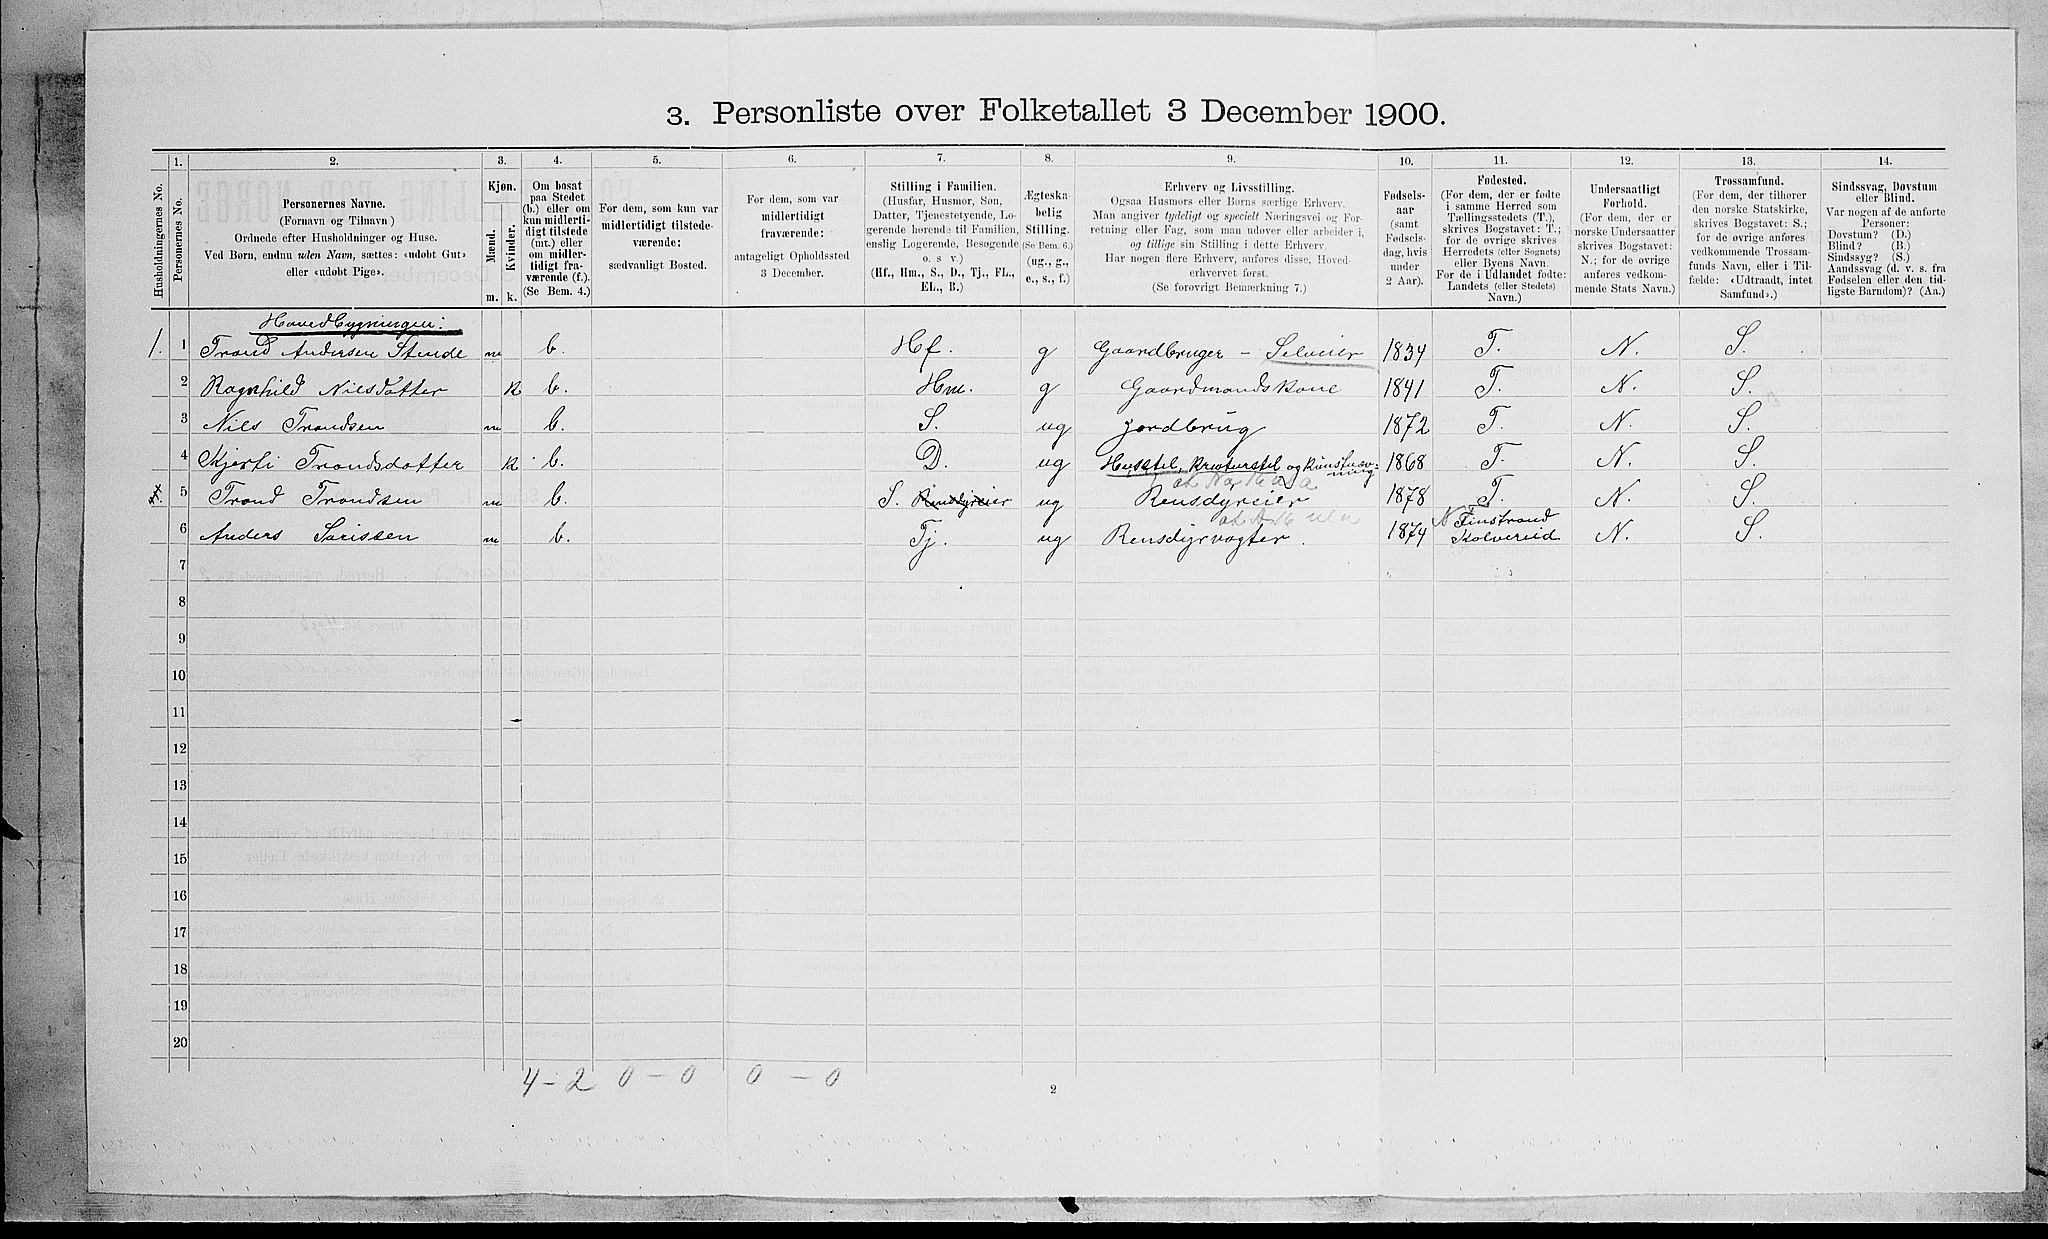 3. Personliste over Folketallet 3 December 1900.
1. 2. 3. 4. 5. 6. 7. 8. 9. 10. 11. 12. 13. 14.
Husholdningernes No.
Personernes No.
Personernes Navne.
(Fornavn og Tilnavn)
Ordnede efter Husholdninger og Huse.
Ved Børn, endnu uden Navn, sættes: «udøbt Gut»
eller «udøbt Pige».
Kjøn.
Mænd.
Kvinder.
m. k.
Om bosat
paa Stedet
(b.) eller om
kun midlerti-
digt tilstede
(mt.) eller
om midler-
tidigt fra-
værende (f.).
(Se Bem. 4.)
For dem, som kun var
midlertidigt tilstede-
værende:
sædvanligt Bosted.
For dem, som var
midlertidigt
fraværende:
antageligt Opholdssted
3 December.
Stilling i Familien.
(Husfar, Husmor, Søn,
Datter, Tjenestetyende, Lo-
gerende hørende til Familien,
enslig Logerende, Besøgende
o. s v.)
(Hf., Hm., S., D., Tj., FL.,
EL., B.)
Ægteska-
belig
Stilling.
(Se Bem. 6.)
(ug., g.,
e., s., f.)
Erhverv og Livsstilling.
Ogsaa Husmors eller Børns særlige Erhverv.
Man angiver tydeligt og specielt Næringsvei og For-
retning eller Fag, som man udøver eller arbeider i,
og tillige sin Stilling i dette Erhverv.
Har nogen flere Erhverv, anføres disse, Hoved-
erhvervet først.
(Se forøvrigt Bemærkning 7.)
Fødsels-
aar
(samt
Fødsels-
dag, hvis
under
2 Aar).
Fødested.
(For dem, der er fødte
i samme Herred som
Tællingsstedets (T.),
skrives Bogstavet: T.;
for de øvrige skrives
Herredets (eller Sognets)
eller Byens Navn.
For de i Udlandet fødte:
Landets (eller Stedets)
Navn.)
Undersaatligt
Forhold.
(For dem, der er
norske Undersaatter
skrives Bogstavet:
N.; for de øvrige
anføres vedkom-
mende Stats Navn.)
Trossamfund.
(For dem, der tilhører
den norske Statskirke,
skrives Bogstavet: S.;
for de øvrige anføres
vedkommende Trossam-
funds Navn, eller i Til-
fælde: «Udtraadt, intet
Samfund».)
Sindssvag, Døvstum
eller Blind.
Var nogen af de anførte
Personer:
Døvstum? (D.)
Blind? (B.)
Sindssyg? (S.)
Aandssvag (d. v. s. fra
Fødselen eller den tid-
ligste Barndom)? (Aa.)
Hovedbygningen:
1. 1 Trond Andersen Stende m b. Hf. g Gaardbruger - Selveier 1834 T. N. S.
2 Ragnhild Nilsdatter k b. Hm. g Gaardmandskone 1841 T. N. S.
3 Nils Trondsen m b. S. ug Jordbrug 1872 T. N. S.
4 Kjersti Trondsdatter k b. D. ug Husstel, Kreaturstel og 1868 T. N. S.
5 Trond Trondsen m b. S. Rensdyreier ug Rensdyreier 1878 T. N. S.
6 Anders m b. Tj. ug Rensdyrvogter. 1874 Finstrand Kolvereid N. S.
7
8
9
10
11
12
13
14
15
16
17
18
19
20
4 - 2 0 - 0 0 - 0
2